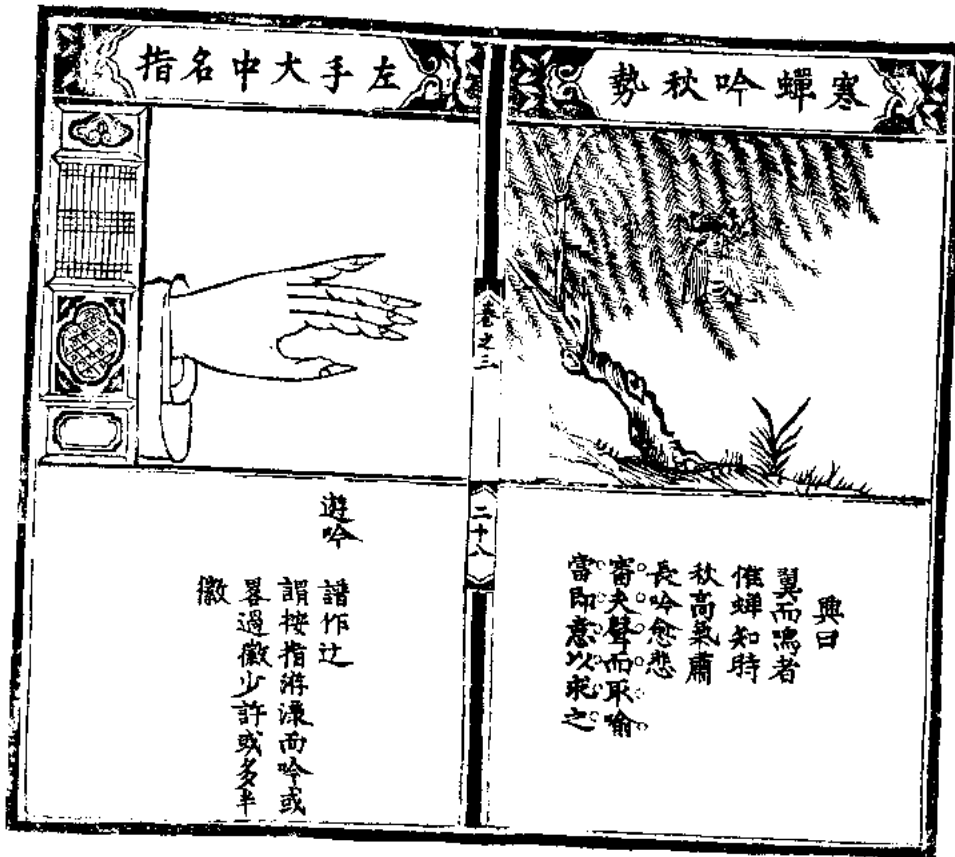 寒蟬吟秋勢
興曰
翼而鳴者
惟蟬知時
秋高氣肅
長吟愈悲
審夫聲而取喻
當即意以求之
卷之三
二十八
左手大中名指
遊吟
譜作
謂按指游漾而吟或
畧過徽少許或多半
徽